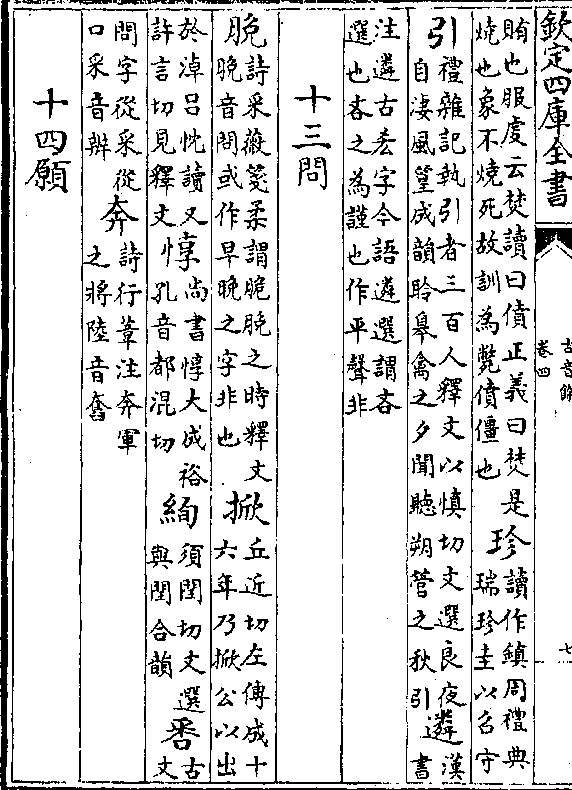 欽定四庫全書
古音餘
卷四
七
賄也服虔云焚讀曰僨正義曰焚是
燒也象不燒死故訓為斃僨僵也
珍
讀作鎮周禮典
瑞珍圭以召守
引
禮雜記執引者三百人釋文以慎切文選良夜
自淒風篁成韻聆皋禽之夕聞聽朔管之秋引
遴
漢
書
注遴古吝字今語遴選謂吝
選也吝之為謹也作平聲非
十三問
脕
詩采薇箋柔謂脆脕之時釋文
脕音問或作早晚之字非也
掀
丘近切左傳成十
六年乃掀公以出
於淖呂忱讀又
許言切見釋文
惇
尚書惇大成裕
忄孔音都混切
絢
須閏切文選
與閏合韻
㖧
古
文
問字從釆從
口釆音辨
奔
詩行葦注奔軍
之將陸音奮
十四願